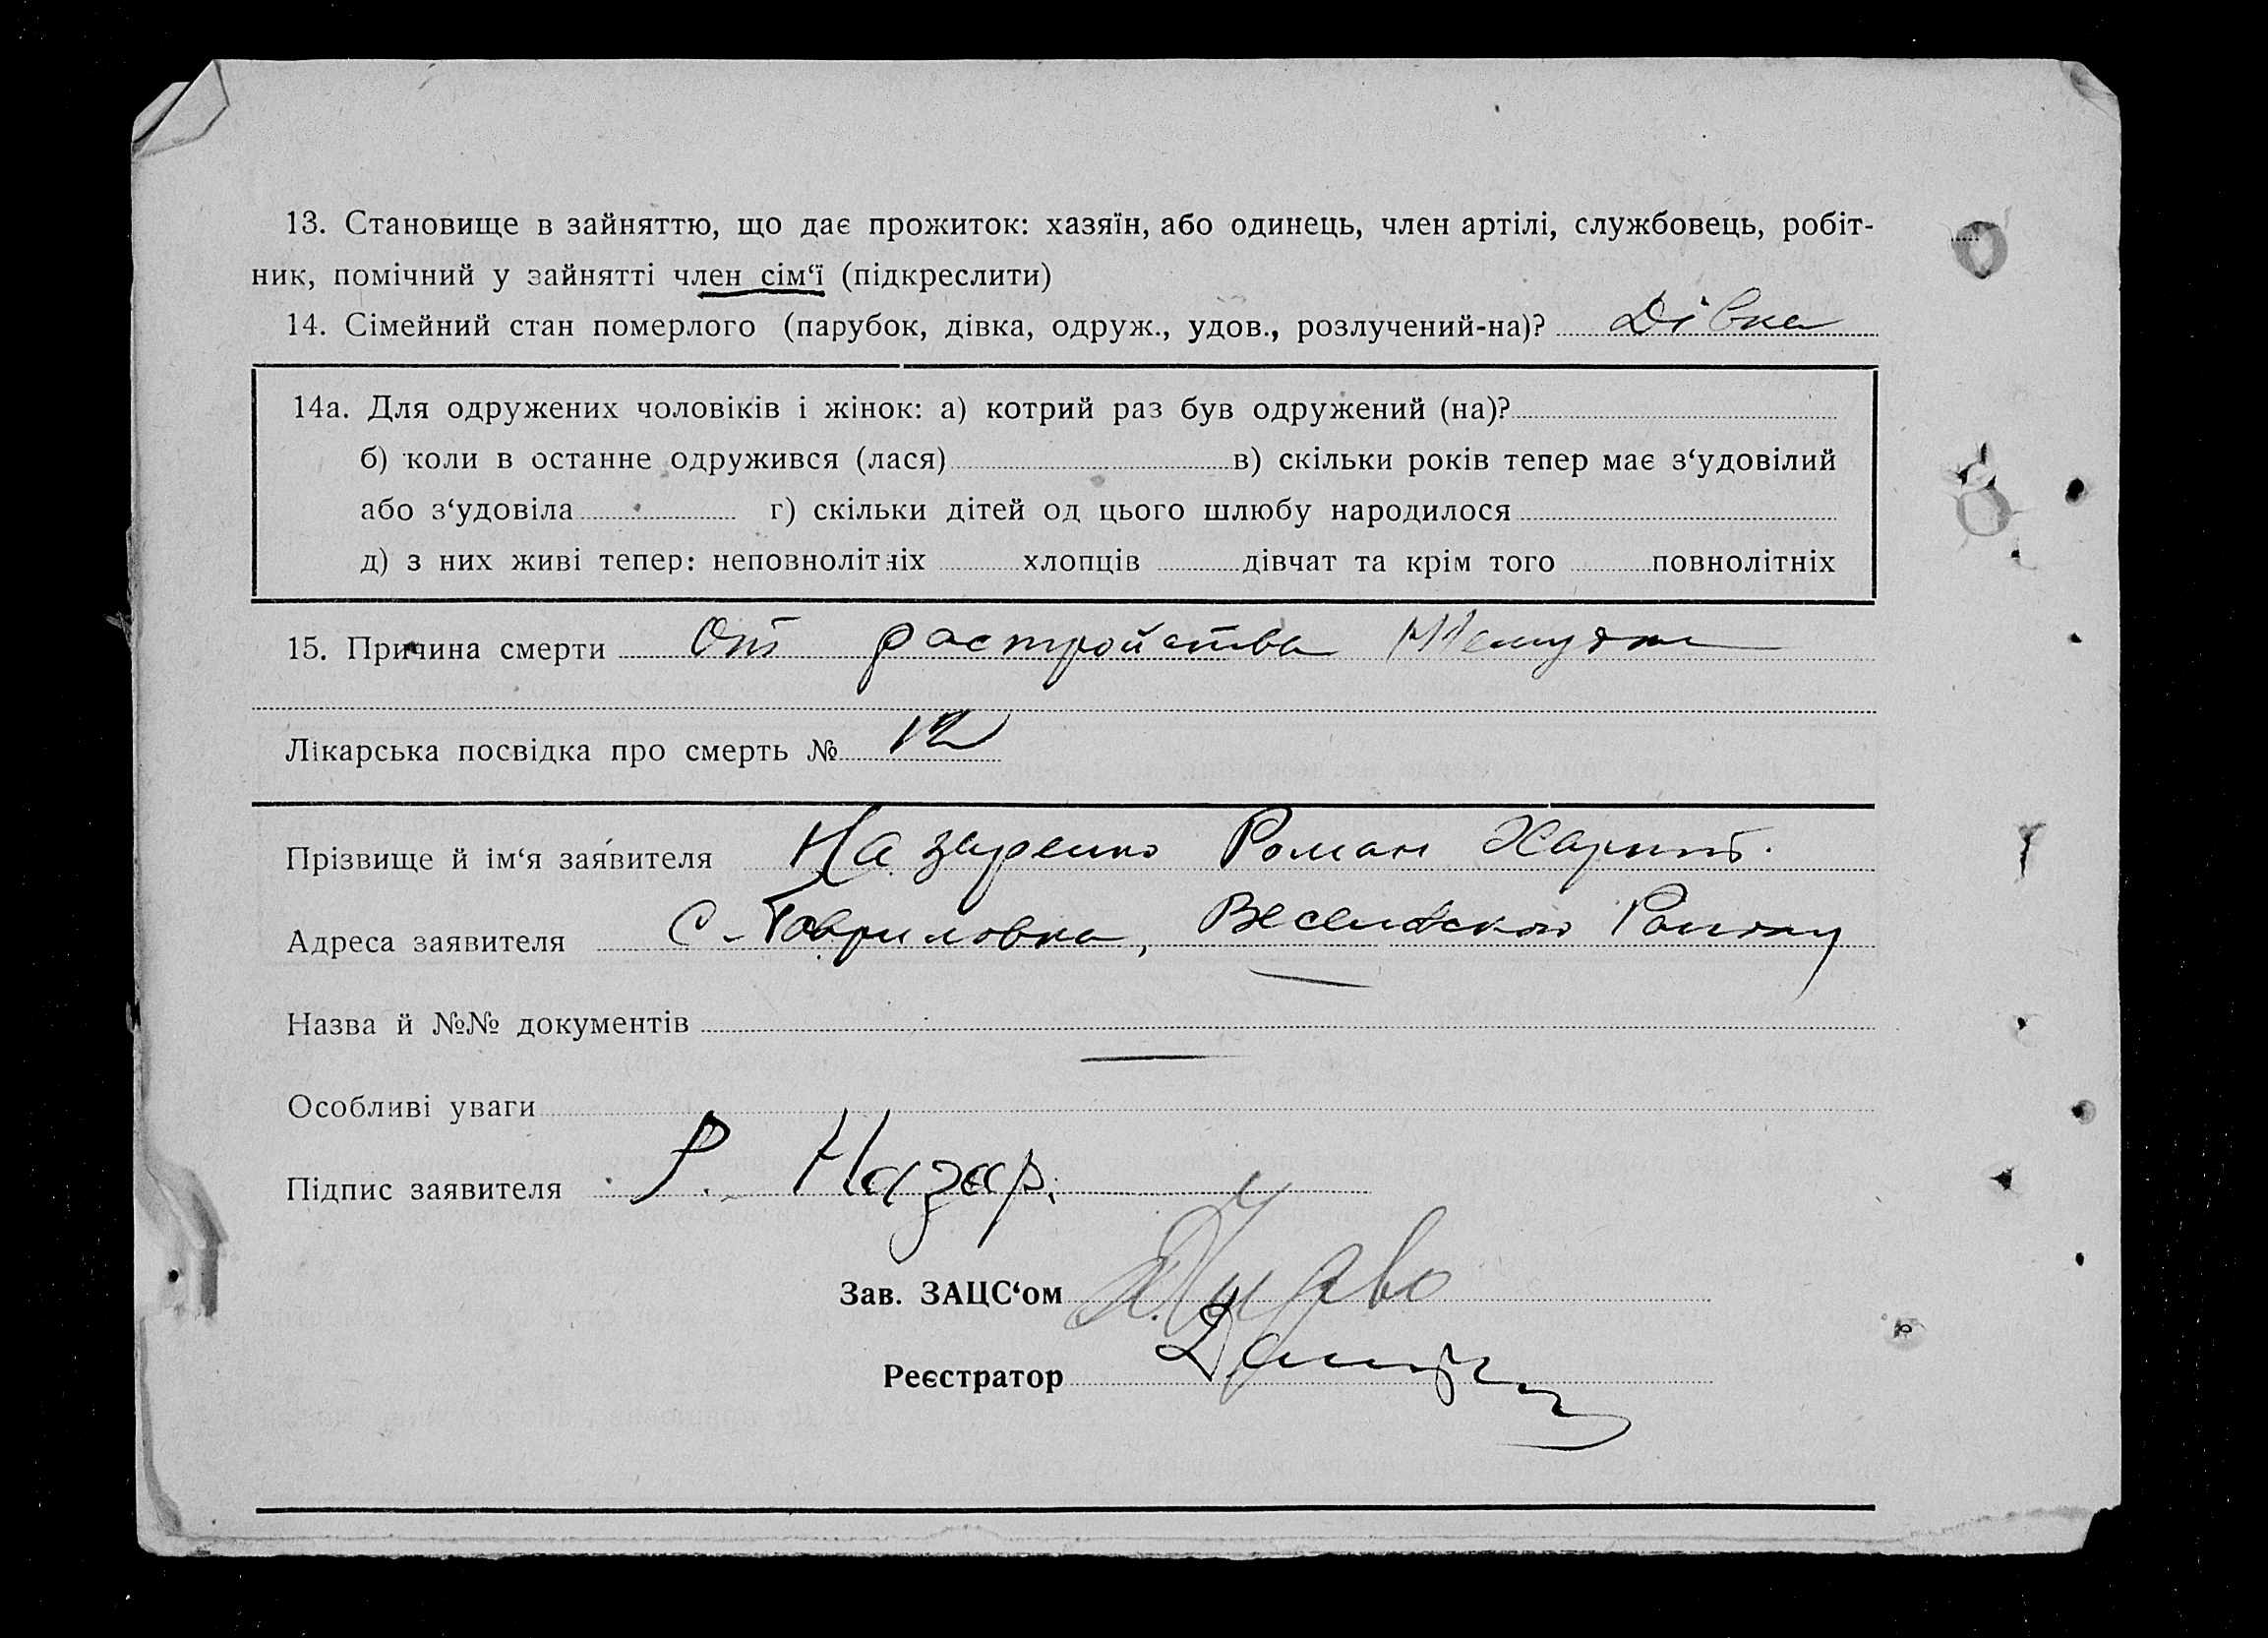 13. Становище в зайняттю, що дає прожиток: хазяїн, або одинець, член артілі, службовець, робіт-
ник, помічний у зайнятті член сім‘ї (підкреслити)
14. Сімейний стан померлого (парубок, дівка, одруж., удов., розлучений-на)? Дівка
14а. Для одружених чоловіків і жінок: а) котрий раз був одружений (на)?
б) коли в останне одружився (лася) в) скільки років тепер має з‘удовілий
або з‘удовіла г) скільки дітей од цього шлюбу народилося
д) з них живі тепер: неповнолітніх хлопців дівчат та крім того повнолітніх
15. Причина смерти От растройства
Лікарська посвідка про смерть № 12
Прізвище й ім‘я заявителя Назаренко Роман Харит.
Адреса заявителя С-Гавриловка,
Назва й №№ документів
Особливі уваги
Підпис заявителя Р. Назар.
Зав. ЗАЦС‘ом
Реєстратор